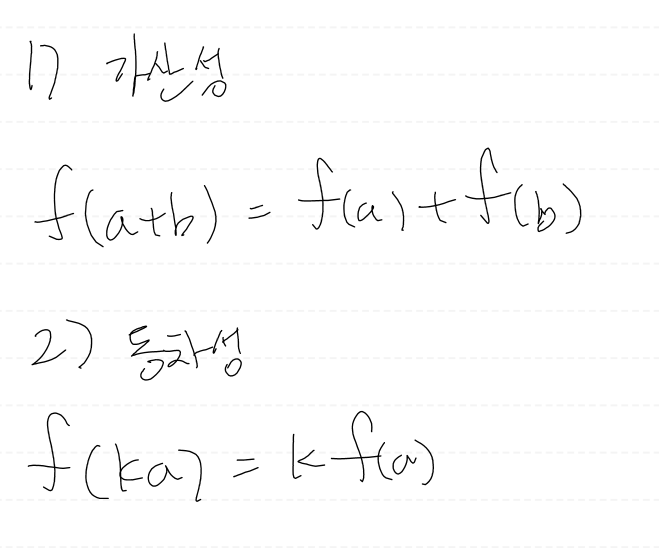 1) 가산성
f(a+b) = f(a) + f(b)
2) 동차성
f(ka) = kf(a)